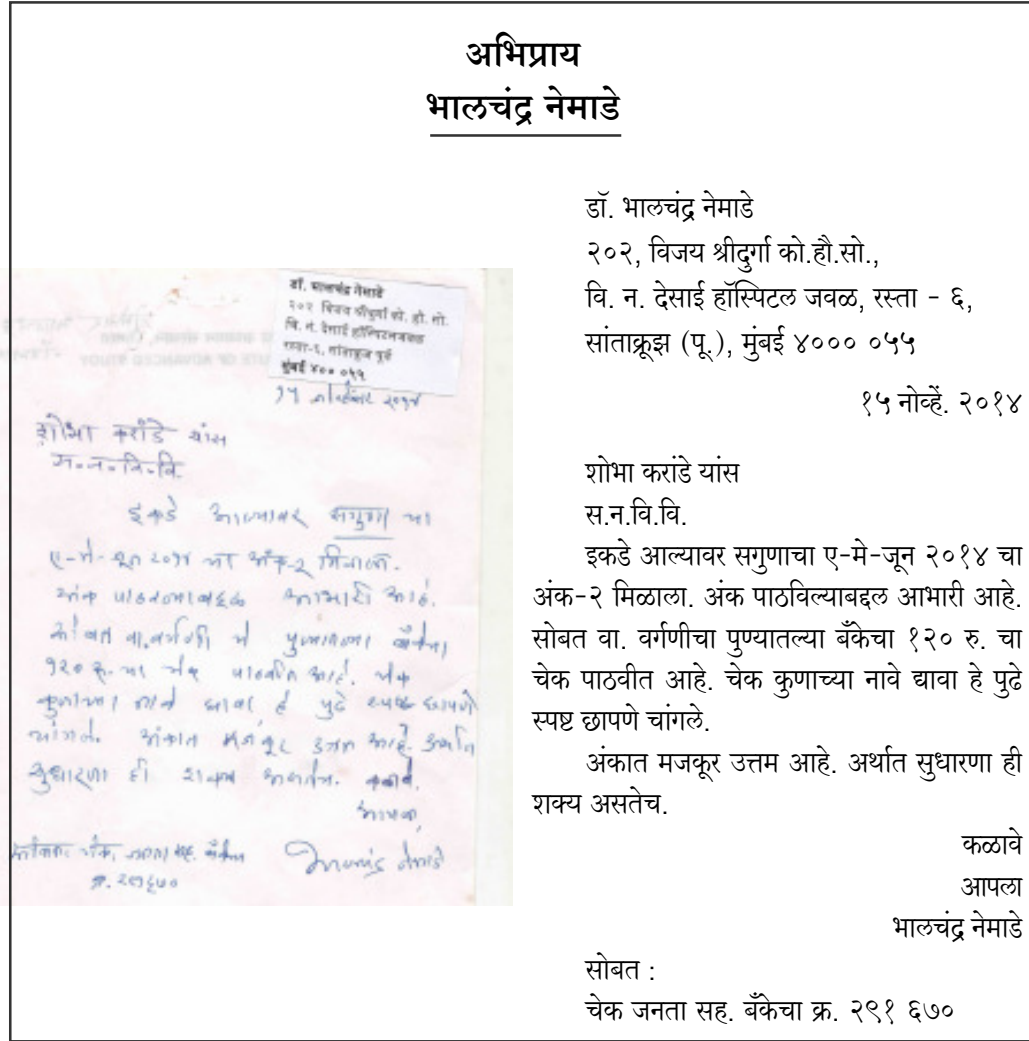 अभिप्राय
भालचंद्र नेमाडे
डॉ. भालचंद्र नेमाडे
२०२ विजय श्रीदुर्गा को. हौ. सो.
वि. न. देसाई हॉस्पिटलजवळ
रस्ता-६, सांताक्रुज पूर्व
मुंबई ४०० ०५५
१५ नोव्हेंबर २०१४
शोभा करांडे यांस
स.न.वि.वि.
इकडे आल्यावर सगुणा चा
ए-मे-जून २०१४ चा अंक-२ मिळाला.
अंक पाठवल्याबद्दल आभारी आहे.
सोबत वा.वर्गणी चे पुण्यातल्या बँकेचा
१२० रु. चा चेक पाठवीत आहे. चेक
कुणाच्या नावे द्यावा हे पुढे स्पष्ट छापणे
चांगले. अंकात मजकूर उत्तम आहे. अर्थात
सुधारणा ही शक्य असतेच. कळावे.
आपला,
भालचंद्र नेमाडे
सोबत: चेक, जनता सह. बँकेचा
क्र. २९१६७०
डॉ. भालचंद्र नेमाडे
२०२, विजय श्रीदुर्गा को.हौ.सो.,
वि. न. देसाई हॉस्पिटल जवळ, रस्ता - ६,
सांताक्रूझ (पू.), मुंबई ४००० ०५५
१५ नोव्हें. २०१४
शोभा करांडे यांस
स.न.वि.वि.
इकडे आल्यावर सगुणाचा ए-मे-जून २०१४ चा
अंक-२ मिळाला. अंक पाठविल्याबद्दल आभारी आहे.
सोबत वा. वर्गणीचा पुण्यातल्या बँकेचा १२० रु. चा
चेक पाठवीत आहे. चेक कुणाच्या नावे द्यावा हे पुढे
स्पष्ट छापणे चांगले.
अंकात मजकूर उत्तम आहे. अर्थात सुधारणा ही
शक्य असतेच.
कळावे
आपला
भालचंद्र नेमाडे
सोबत :
चेक जनता सह. बँकेचा क्र. २९१ ६७०